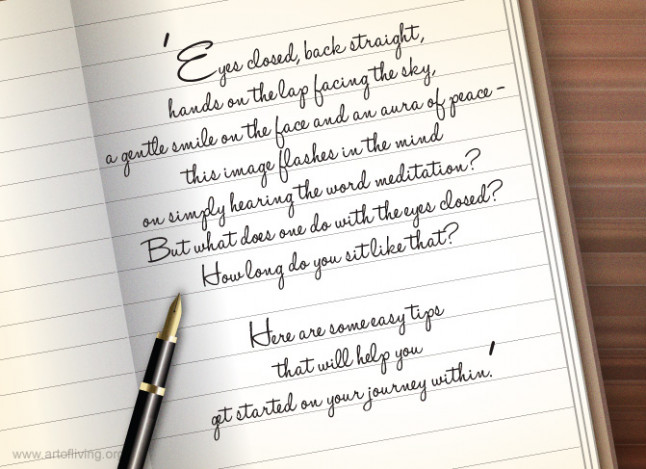 'Eyes closed, back straight,
hands on the lap facing the sky,
a gentle smile on the face and an aura of peace -
this image flashes in the mind
on simply hearing the word meditation?
But what does one do with the eyes closed?
How long do you sit like that?
Here are some easy tips
that will help you
get started on your journey within.'
www.artofliving.org